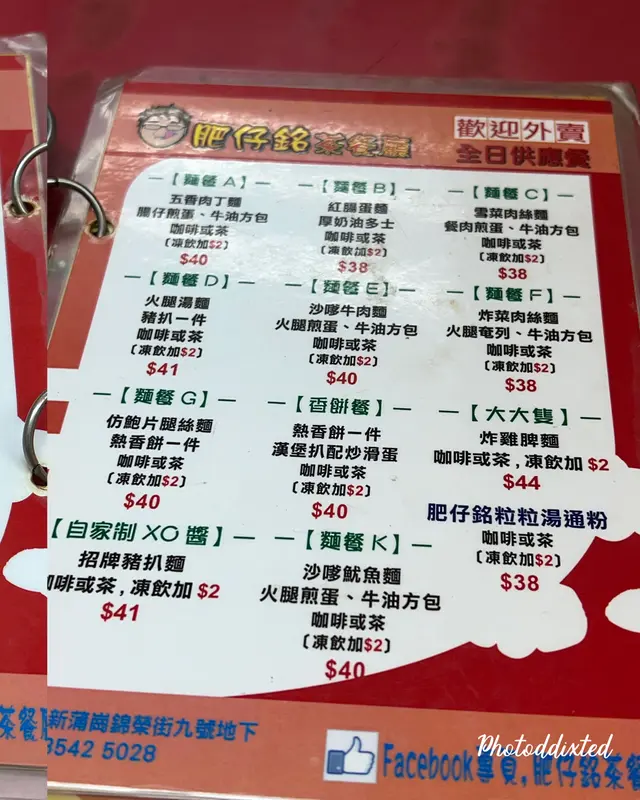 肥仔銘茶餐廳
歡迎外賣
全日供應餐
【麵餐A】
五香肉丁麵
腸仔煎蛋、牛油方包
咖啡或茶
(凍飲加$2)
$40
【麵餐B】
紅腸蛋麵
厚奶油多士
咖啡或茶
(凍飲加$2)
$38
【麵餐C】
雪菜肉絲麵
餐肉煎蛋、牛油方包
咖啡或茶
(凍飲加$2)
$38
【麵餐D】
火腿湯麵
豬扒一件
咖啡或茶
(凍飲加$2)
$41
【麵餐E】
沙嗲牛肉麵
火腿煎蛋、牛油方包
咖啡或茶
(凍飲加$2)
$40
【麵餐F】
炸菜肉絲麵
火腿奄列、牛油方包
咖啡或茶
(凍飲加$2)
$38
【麵餐G】
仿鮑片腿絲麵
熱香餅一件
咖啡或茶
(凍飲加$2)
$40
【香餅餐】
熱香餅一件
漢堡扒配炒滑蛋
咖啡或茶
(凍飲加$2)
$40
【大大隻】
炸雞脾麵
咖啡或茶,凍飲加$2
$44
肥仔銘粒粒湯通粉
咖啡或茶
(凍飲加$2)
$38
【自家制XO醬】
招牌豬扒麵
咖啡或茶,凍飲加$2
$41
【麵餐K】
沙嗲魷魚麵
火腿煎蛋、牛油方包
咖啡或茶
(凍飲加$2)
$40
茶餐
新蒲崗錦榮街九號地下
3542 5028
Facebook專頁,肥仔銘茶餐
Photoddixted